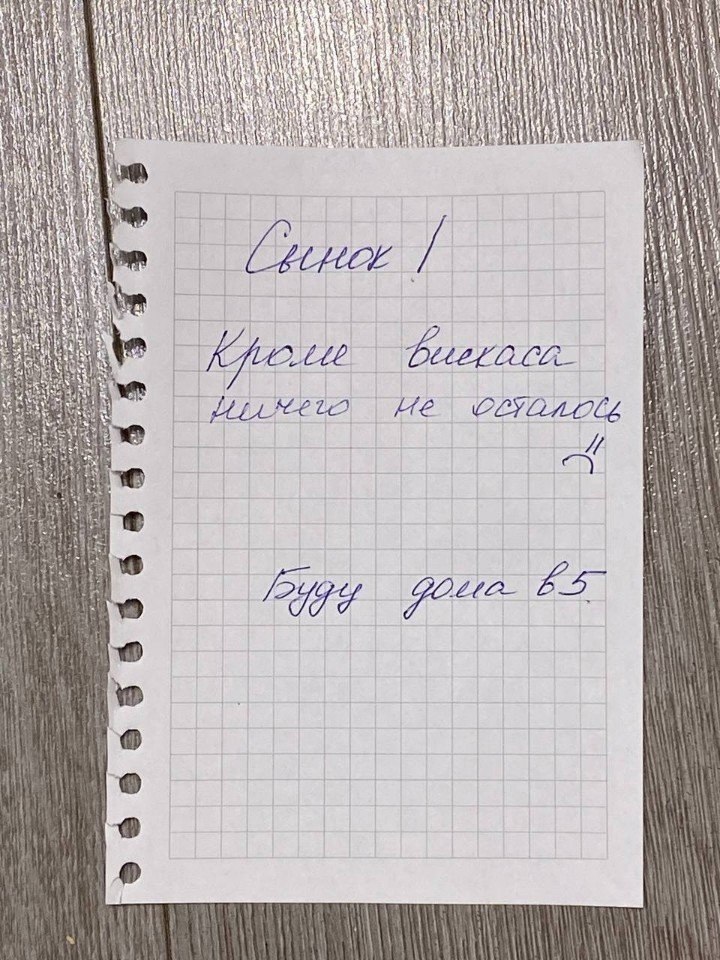 Сынок!
Кроме вискаса
ничего не осталось
Буду дома в 5.